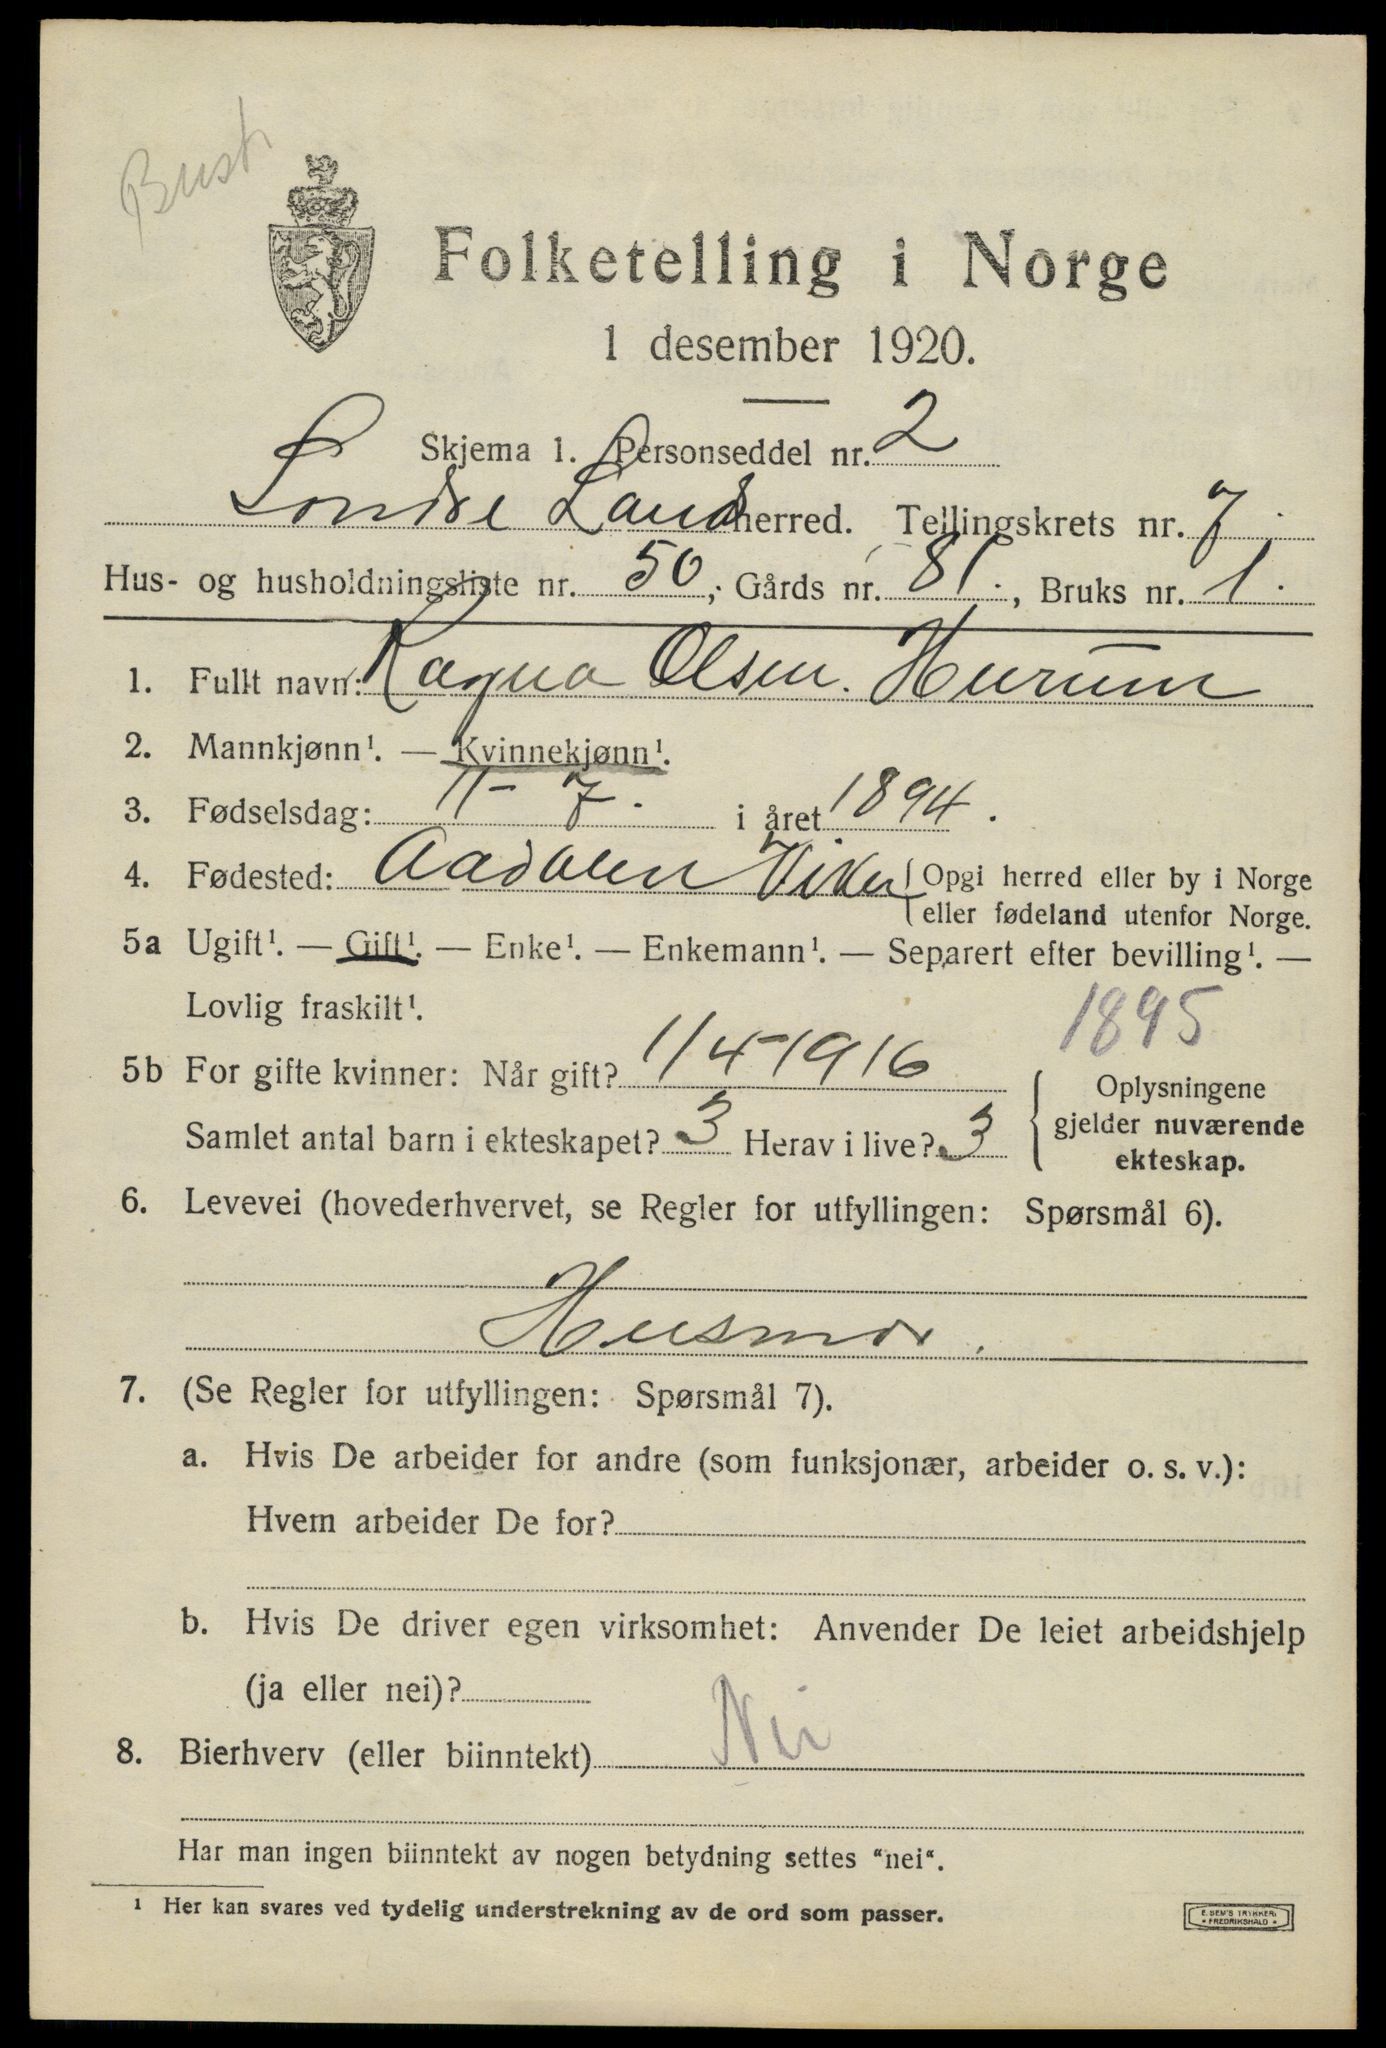 Busk
Folketelling i Norge
1 desember 1920.
Skjema 1. Personseddel nr. 2
Søndre Land herred. Tellingskrets nr. 7.
Hus- og husholdningsliste nr. 50; Gårds nr. 81., Bruks nr. 1.
1. Fullt navn: Ragna Olsen. Hurum
2. Mannkjønn¹. — Kvinnekjønn¹.
3. Fødselsdag: 11 - 7. i året 1894.
4. Fødested: Aadalen Viker { Opgi herred eller by i Norge
eller fødeland utenfor Norge.
5a Ugift¹. — Gift¹. — Enke¹. — Enkemann¹. — Separert efter bevilling¹. —
Lovlig fraskilt¹.
1895
5b For gifte kvinner: Når gift? 1/4-1916
Samlet antal barn i ekteskapet? 3 Herav i live? 3
{ Oplysningene
gjelder nuværende
ekteskap.
6. Levevei (hovederhvervet, se Regler for utfyllingen: Spørsmål 6).
Husmor.
7. (Se Regler for utfyllingen: Spørsmål 7).
a. Hvis De arbeider for andre (som funksjonær, arbeider o. s. v.):
Hvem arbeider De for?
b. Hvis De driver egen virksomhet: Anvender De leiet arbeidshjelp
(ja eller nei)?
8. Bierhverv (eller biinntekt) Nei
Har man ingen biinntekt av nogen betydning settes "nei".
¹ Her kan svares ved tydelig understrekning av de ord som passer.
E. SEM'S TRYKKERI
FREDRIKSHALD